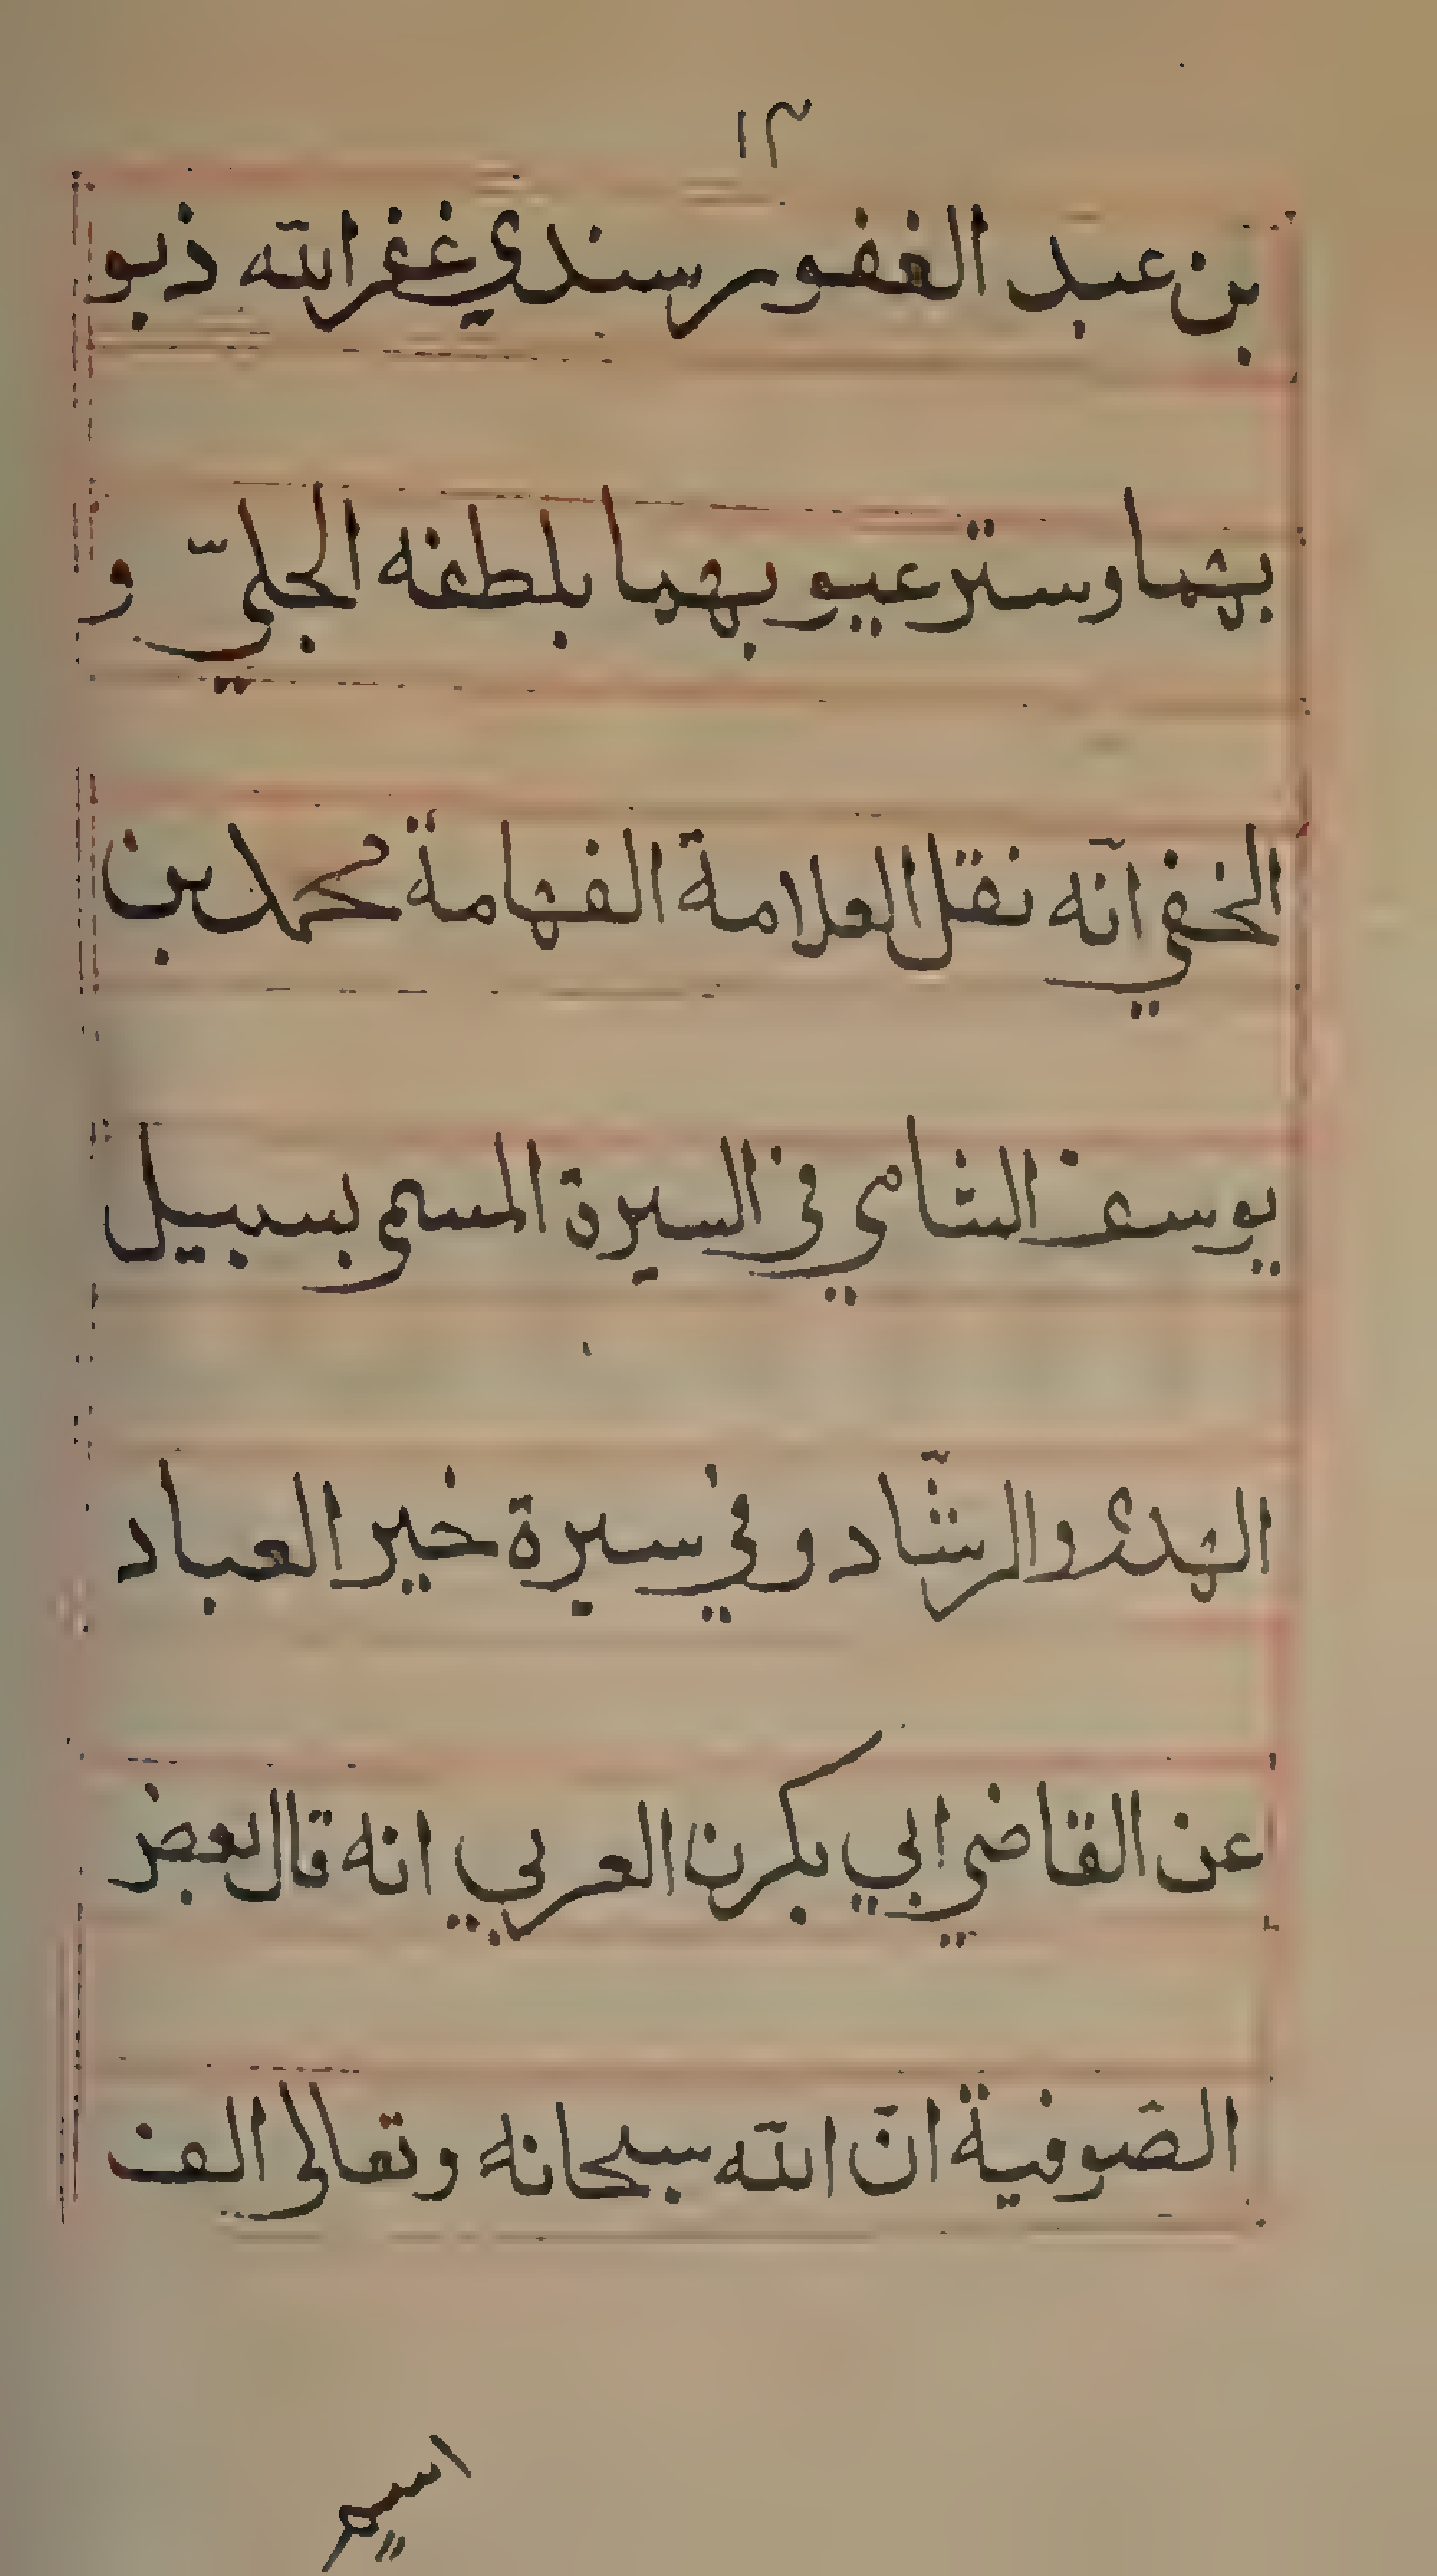 ١٣
بن عبد الغفور سندي غفر الله ذنو
بهما وستر عيوبهما بلطفه الجليّ و
الخفي انّه نقل العلامة الفهامة محمد بن
يوسف الشامي في السيرة المسمى بسبيل
الهدى والرشّاد وفي سيرة خير العباد
عن القاضي ابي بكر بن العربي انه قال بعض
الصّوفية انّ الله سبحانه وتعالى الف